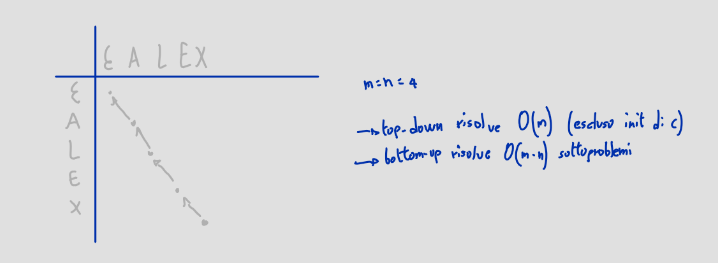 ε A L E X
ε
A
L
E
X
m=n=4
→ top-down risolve O(n) (escluso init di c)
→ bottom-up risolve O(m·n) sottoproblemi